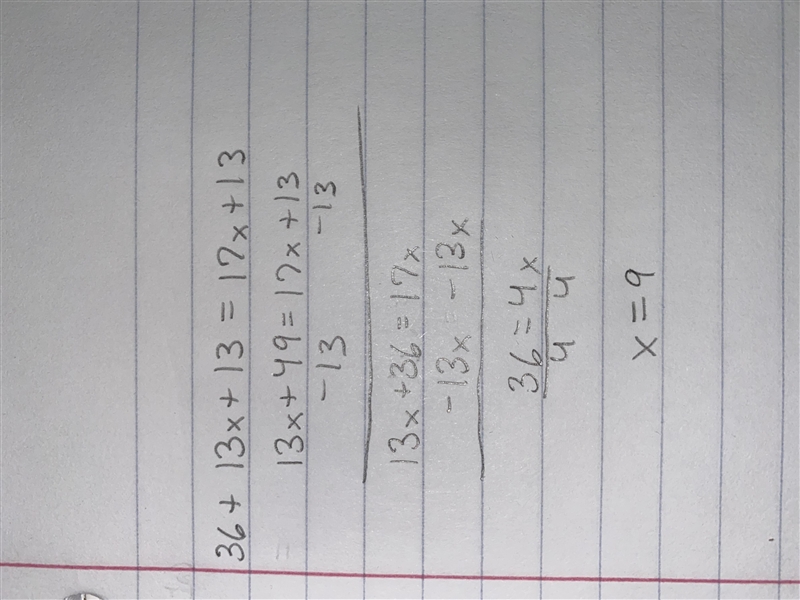 36 + 13x + 13 = 17x + 13
13x + 49 = 17x + 13
-13 -13
13x + 36 = 17x
-13x = -13x
36 = 4x
4 4
x = 9